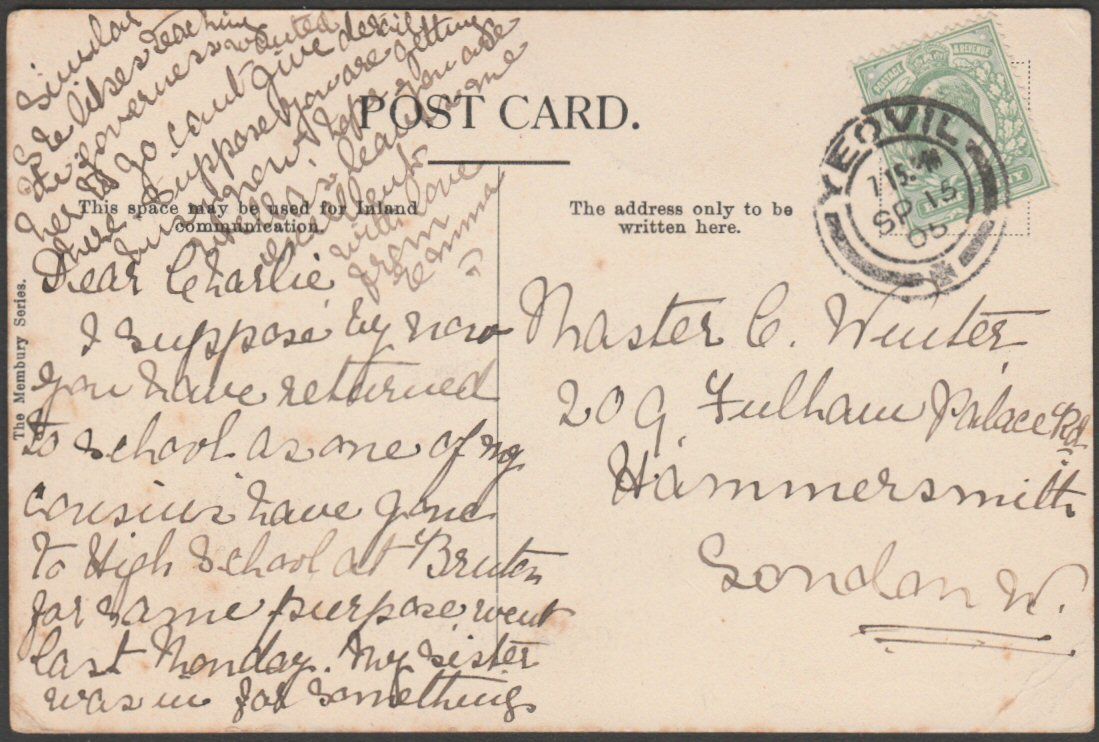 POST CARD.
This space may be used for Inland
communication.
The address only to be
written here.
The Membury Series.
POSTAGE & REVENUE
YEOVIL
SP 15
05
Master C. Winter
209 Fulham Palace Rd
Hammersmith
London W.
Dear Charlie
I suppose by now
you have returned
to school as one of my
cousins have gone
to High School at Bruton
for same purpose went
last Monday. My sister
was in for somethings
similar
she likes teaching
governess wanted
here to go cant give detail
there. Suppose you are getting
hope you are
well &
excellent
with love
from
Emma